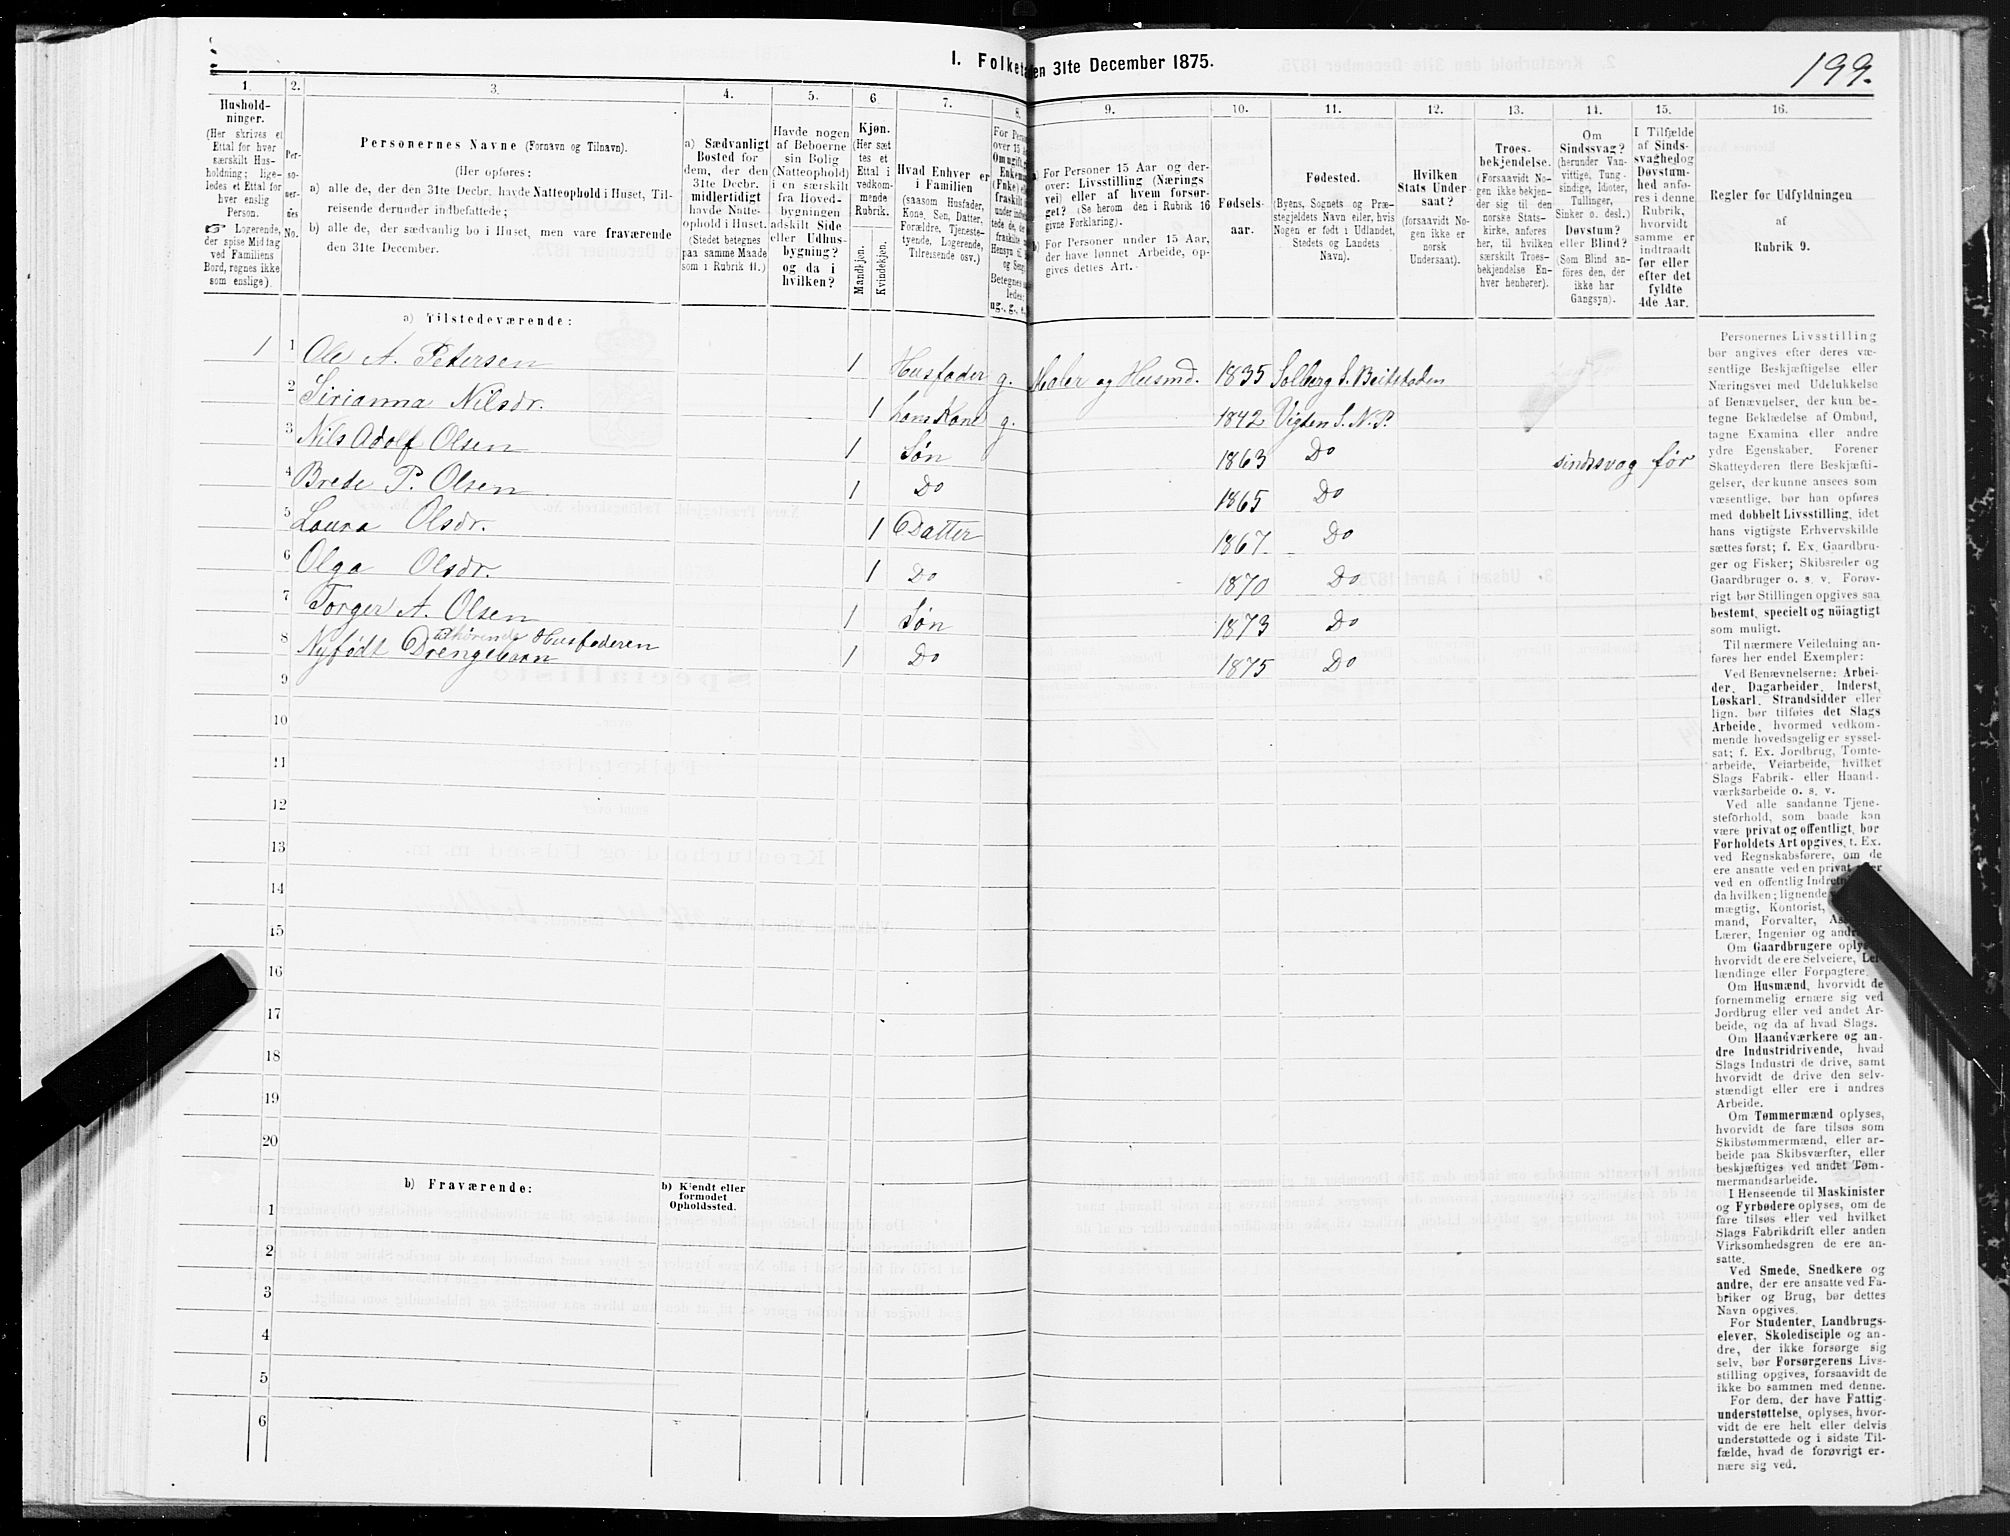 199.
I. Folketa
en 31te December 1875.
1. 2. 3. 4. 5. 6. 7. 8. 9. 10. 11. 12. 13. 14. 15. 16.
Hushold-
ninger.
(Her skrives et
Ettal for hver
særskilt Hus-
holdning; lige-
ledes et Ettal for
hver enslig
Person.
☞ Logerende,
der spise Middag
ved Familiens
Bord, regnes ikke
som enslige).
Per-
so-
ner-
nes
No.
Personernes Navne (Fornavn og Tilnavn).
(Her opføres:
a) alle de, der den 31te Decbr. havde Natteophold i Huset, Til-
reisende derunder indbefattede;
b) alle de, der sædvanlig bo i Huset, men vare fraværende
den 31te December.
a) Sædvanligt
Bosted for
dem, der den
31te Decbr.
midlertidigt
havde Natte-
ophold i Huset.
(Stedet betegnes
paa samme Maade
som i Rubrik 11.)
Havde nogen
af Beboerne
sin Bolig
(Natteophold)
i en særskilt
fra Hoved-
bygningen
adskilt Side
eller Udhus-
bygning?
og da i
hvilken?
Kjøn.
(Her sæt
tes et
Ettal i
vedkom-
mende
Rubrik.
Mandkjøn.
Kvindekjøn.
Hvad Enhver er
i Familien
(saasom Husfader,
Kone, Søn, Datter,
Forældre, Tjeneste-
tyende, Logerende,
Tilreisende osv.)
For Perso
over 15 A
Om ugift,
Enkema
(Enke) el
fraskilt
a) For Personer 15 Aar og der-
over: Livsstilling (Nærings
vei) eller af hvem forsør-
get? (Se herom den i Rubrik 16
givne Forklaring).
b) For Personer under 15 Aar,
der have lønnet Arbeide, op-
gives dettes Art.
Fødsels-
aar.
Fødested.
(Byens, Sognets og Præ-
stegjeldets Navn eller, hvis
Nogen er født i Udlandet,
Stedets og Landets
Navn).
Hvilken
Stats Under-
saat?
(forsaavidt No-
gen ikke er
norsk
Undersaat).
Troes-
bekjendelse.
(Forsaavidt No-
gen ikke bekjen-
der sig til den
norske Stats-
kirke, anføres
her, til hvilken
særskilt Troes-
bekjendelse En-
hver henhører).
Om
Sindssvag?
(herunder Van-
vittige, Tung-
sindige, Idioter,
Tullinger,
Sinker o. desl.)
Døvstum?
eller Blind?
(Som Blind an-
føres den, der
ikke har
Gangsyn).
I Tilfælde
af Sinds-
svaghed og
Døvstum-
hed anfø-
res i denne
Rubrik,
hvorvidt
samme er
indtraadt
før eller
efter det
fyldte
4de Aar.
Regler for Udfyldningen
af
Rubrik 9.
a) Tilstedeværende:
1 1 Ole A. Petersen 1 Husfader g. Maler og Husmd. 1835 Solberg S. Beitstaden
2 Sirianna Nilsdr. 1 hans Kone g. 1842 Vigten S. N. P.
3 Nils Adolf Olsen 1 Søn 1863 Do sindssvag før
4 Brede P. Olsen 1 Do 1865 Do
5 Laura Olsdr. 1 Datter 1867 Do
6 Olga Olsdr. 1 Do 1870 Do
7 Torger A. Olsen 1 Søn 1873 Do
8 Nyfødt Drengebarn tilhørende Husfaderen 1 Do 1875 Do
9
10
11
12
13
14
15
16
17
18
19
20
b) Fraværende:
b) Kjendt eller
formodet
Opholdssted.
1
2
3
4
5
6
Personernes Livsstilling
bør angives efter deres væ-
sentlige Beskjæftigelse eller
Næringsvei med Udelukkelse
af Benævnelser, der kun be-
tegne Beklædelse af Ombud,
tagne Examina eller andre
ydre Egenskaber. Forener
Skatteyderen flere Beskjæfti-
gelser, der kunne ansees som
væsentlige, bør han opføres
med dobbelt Livsstilling, idet
hans vigtigste Erhvervskilde
sættes først; f. Ex. Gaardbru-
ger og Fisker; Skibsreder og
Gaardbruger o. s. v. Forøv-
rigt bør Stillingen opgives saa
bestemt, specielt og nöiagtigt
som muligt.
Til nærmere Veiledning an-
føres her endel Exempler:
Ved Benævnelserne: Arbei-
der, Dagarbeider, Inderst,
Løskarl, Strandsidder eller
lign. bør tilføies det Slags
Arbeide, hvormed vedkom-
mende hovedsagelig er syssel-
sat; f. Ex. Jordbrug, Tomte-
arbeide, Veiarbeide, hvilket
Slags Fabrik- eller Haand-
værksarbeide o. s. v.
Ved alle saadanne Tjene-
steforhold, som baade kan
være privat og offentligt, bør
Forholdets Art opgives, t. Ex.
ved Regnskabsførere, om de
ere ansatte ved en privat
ved en offentlig Indretn
da hvilken; lignende
mægtig, Kontorist,
mand, Forvalter, As
Lærer, Ingeniør og andre
Om Gaardbrugere oplys
hvorvidt de ere Selveiere, Lei
lændinge eller Forpagtere.
Om Husmænd, hvorvidt de
fornemmelig ernære sig ved
Jordbrug eller ved andet Ar-
beide, og da af hvad Slags.
Om Haandværkere og an-
dre Industridrivende, hvad
Slags Industri de drive, samt
hvorvidt de drive den selv-
stændigt eller ere i andres
Arbeide.
Om Tømmermænd oplyses,
hvorvidt de fare tilsøs som
Skibstømmermænd, eller ar-
beide paa Skibsværfter, eller
beskjæftiges ved andet Tøm-
mermandsarbeide.
I Henseende til Maskinister
og Fyrbødere oplyses, om de
fare tilsøs eller ved hvilket
Slags Fabrikdrift eller anden
Virksomhedsgren de ere an-
satte.
Ved Smede, Snedkere og
andre, der ere ansatte ved Fa-
briker og Brug, bør dettes
Navn opgives.
For Studenter, Landbrugs-
elever, Skoledisciple og an-
dre, der ikke forsørge sig
selv, bør Forsørgerens Livs-
stilling opgives, forsaavidt de
ikke bo sammen med denne.
For dem, der have Fattig-
understøttelse, oplyses, hvor-
vidt de ere helt eller delvis
understøttede og i sidste Til-
fælde, hvad de forøvrigt er-
nære sig ved.